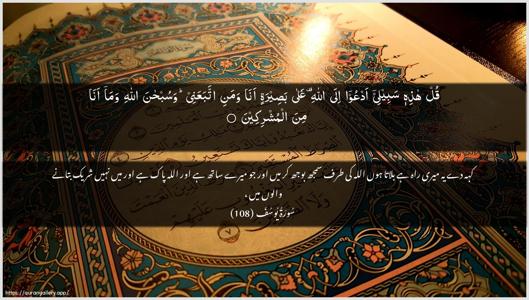 قُلْ هٰذِهٖ سَبِيْلِيْۤ اَدْعُوْۤا اِلَى اللّٰهِ ؔ عَلٰى بَصِيْرَةٍ اَنَا وَمَنِ اتَّبَعَنِيْ ؕ وَسُبْحٰنَ اللّٰهِ وَمَاۤ اَنَا
مِنَ الْمُشْرِكِيْنَ ○
کہہ دے یہ میری راہ ہے بلاتا ہوں اللہ کی طرف سمجھ بوجھ کر میں اور جو میرے ساتھ ہے اور اللہ پاک ہے اور میں نہیں شریک بنانے
والوں میں،
سُوْرَۃُ یُوْسُفَ (108)
https://qurangallery.app/